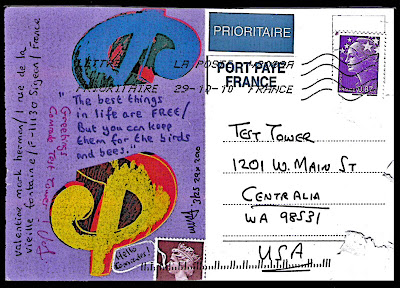 PRIORITAIRE
PORT PAYÉ
FRANCE
LETTRE
PRIORITAIRE
LA POSTE
29-10-10 FRANCE
valentine mark herman / 1 rue de la
vieille fontaine / F-11130 Sigean / France
"The best things
in life are FREE/
But you can keep
them for the birds
and bees."
Greetings
Comrade Test Tower
Hello
Comrades!
TEST TOWER
1201 W. MAIN ST
CENTRALIA
WA 98531
USA